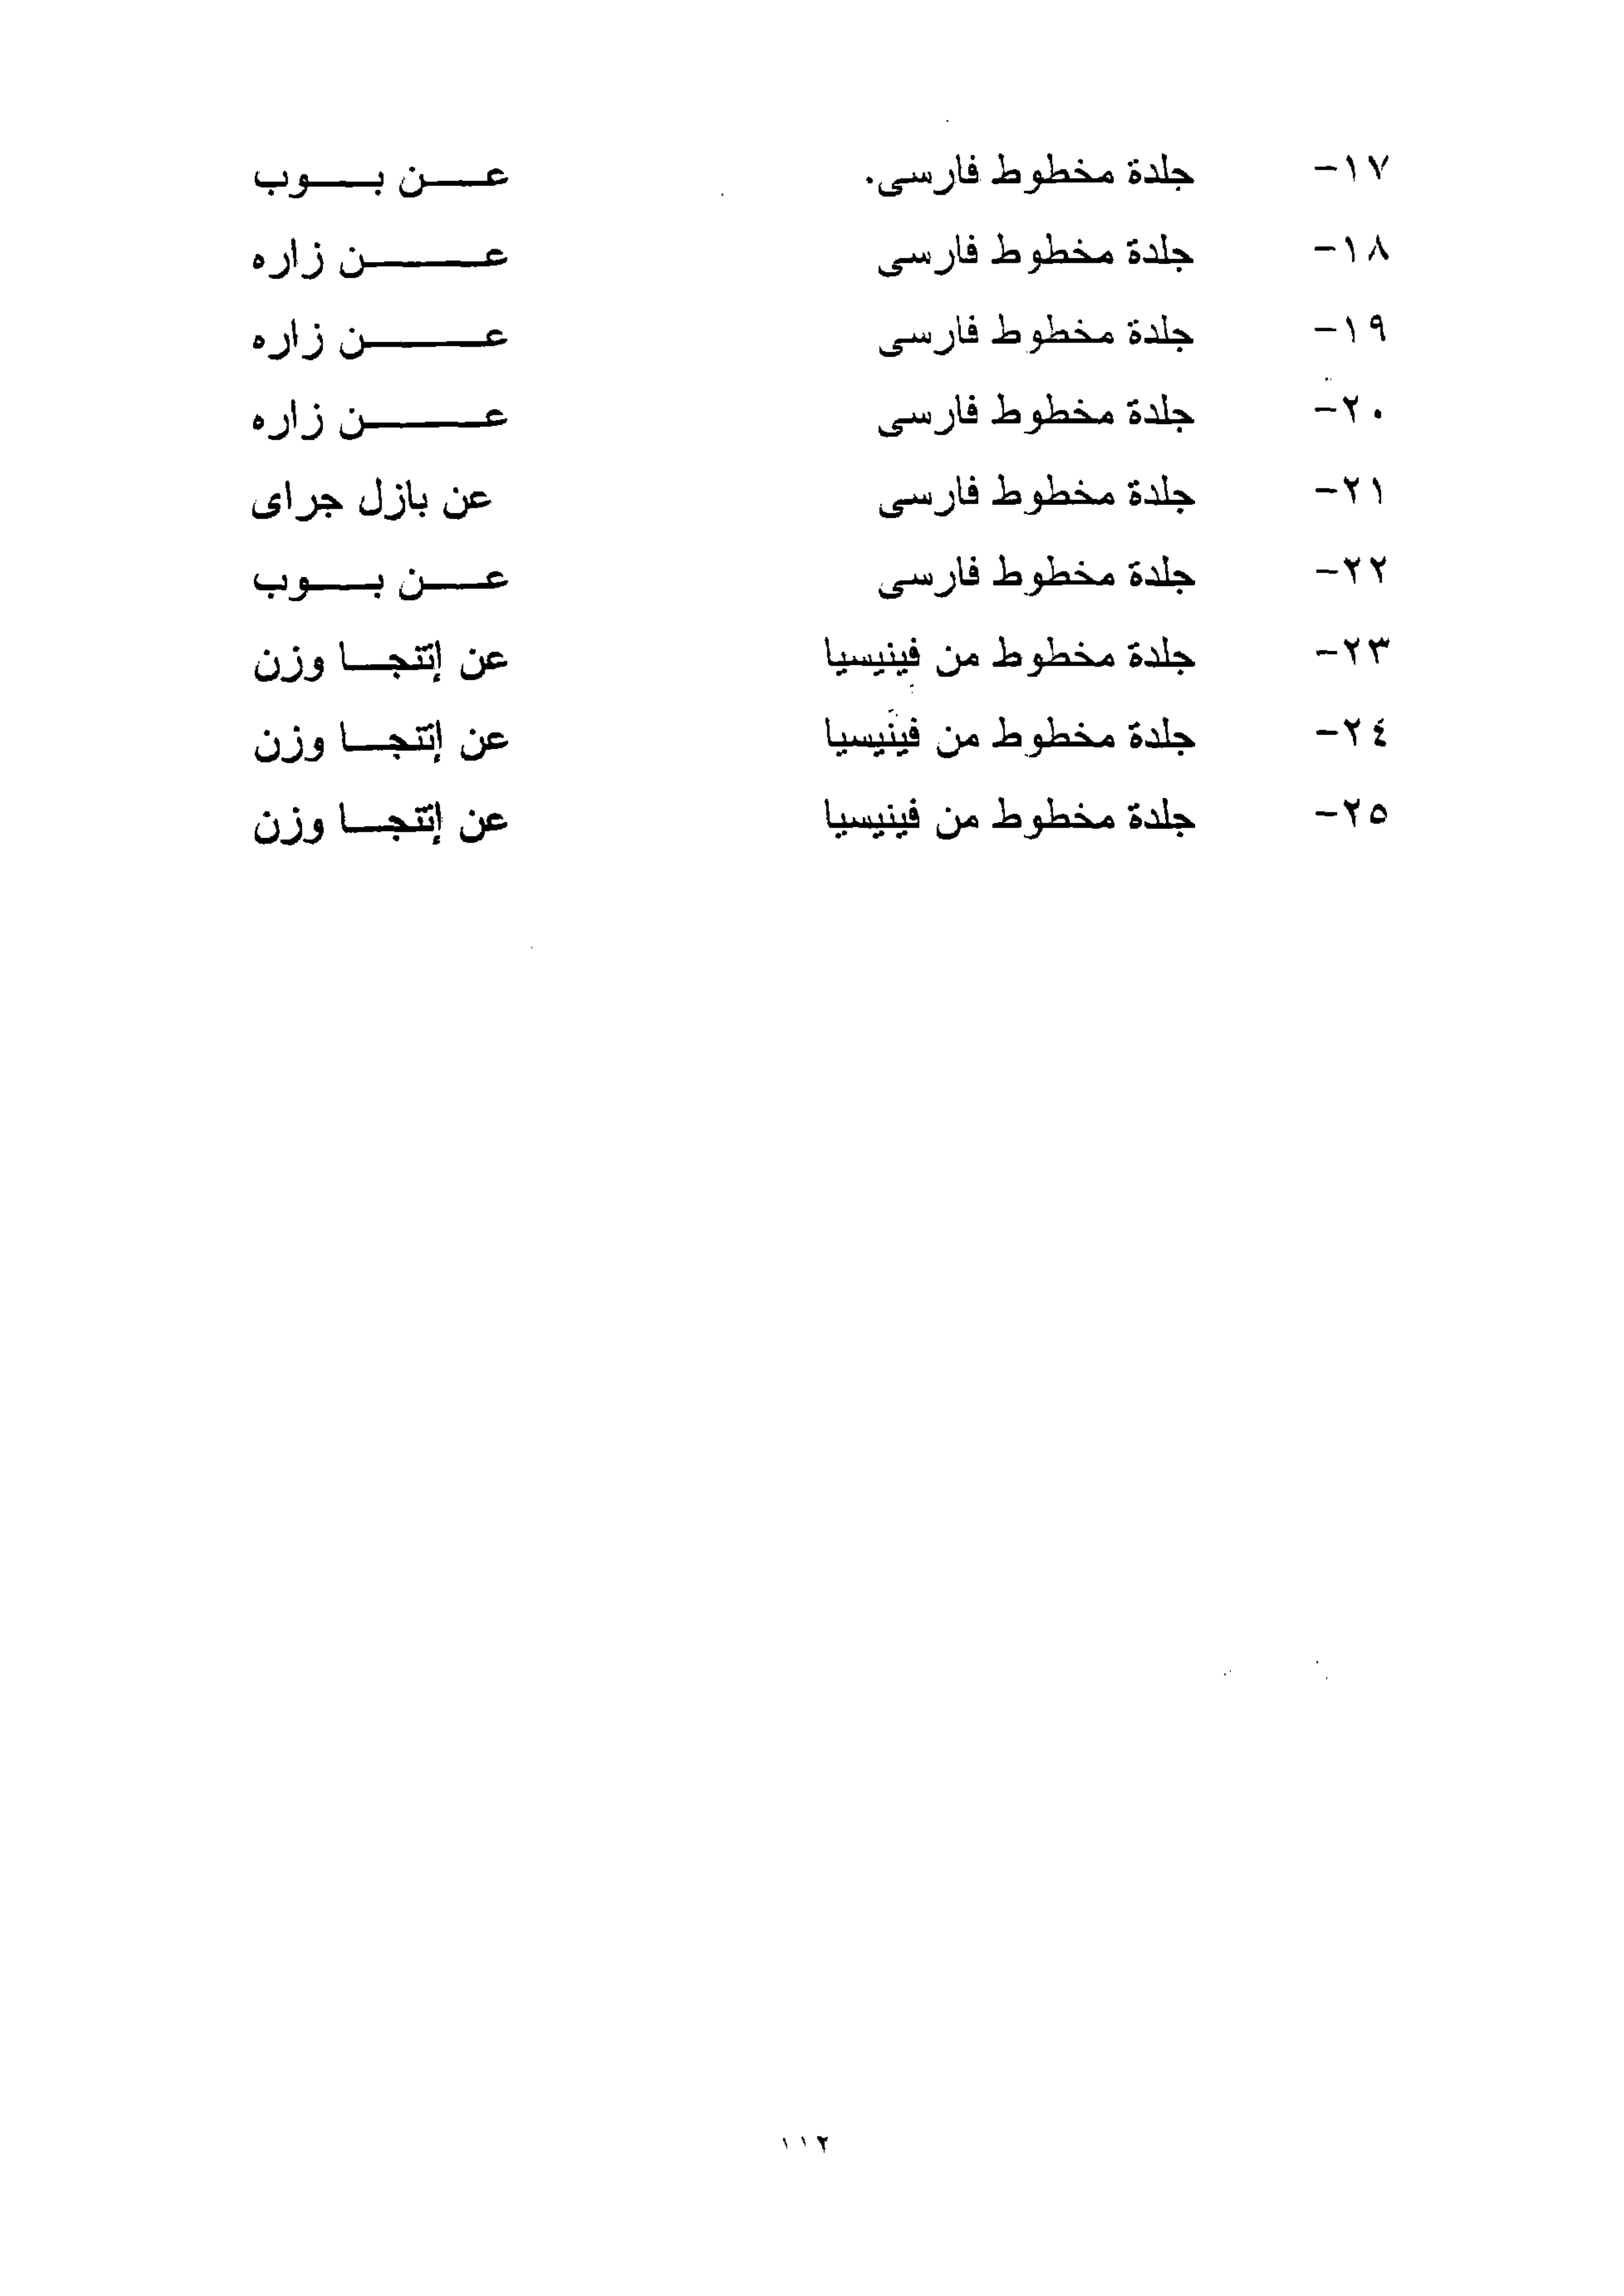 ١٧- جلدة مخطوط فارسى. عن بوب
١٨- جلدة مخطوط فارسى عن زاره
١٩- جلدة مخطوط فارسى عن زاره
٢٠- جلدة مخطوط فارسى عن زاره
٢١- جلدة مخطوط فارسى عن بازل جراى
٢٢- جلدة مخطوط فارسى عن بوب
٢٣- جلدة مخطوط من فينيسيا عن إتنجا وزن
٢٤- جلدة مخطوط من فينيسيا عن إتنجا وزن
٢٥- جلدة مخطوط من فينيسيا عن إتنجا وزن
١١٢